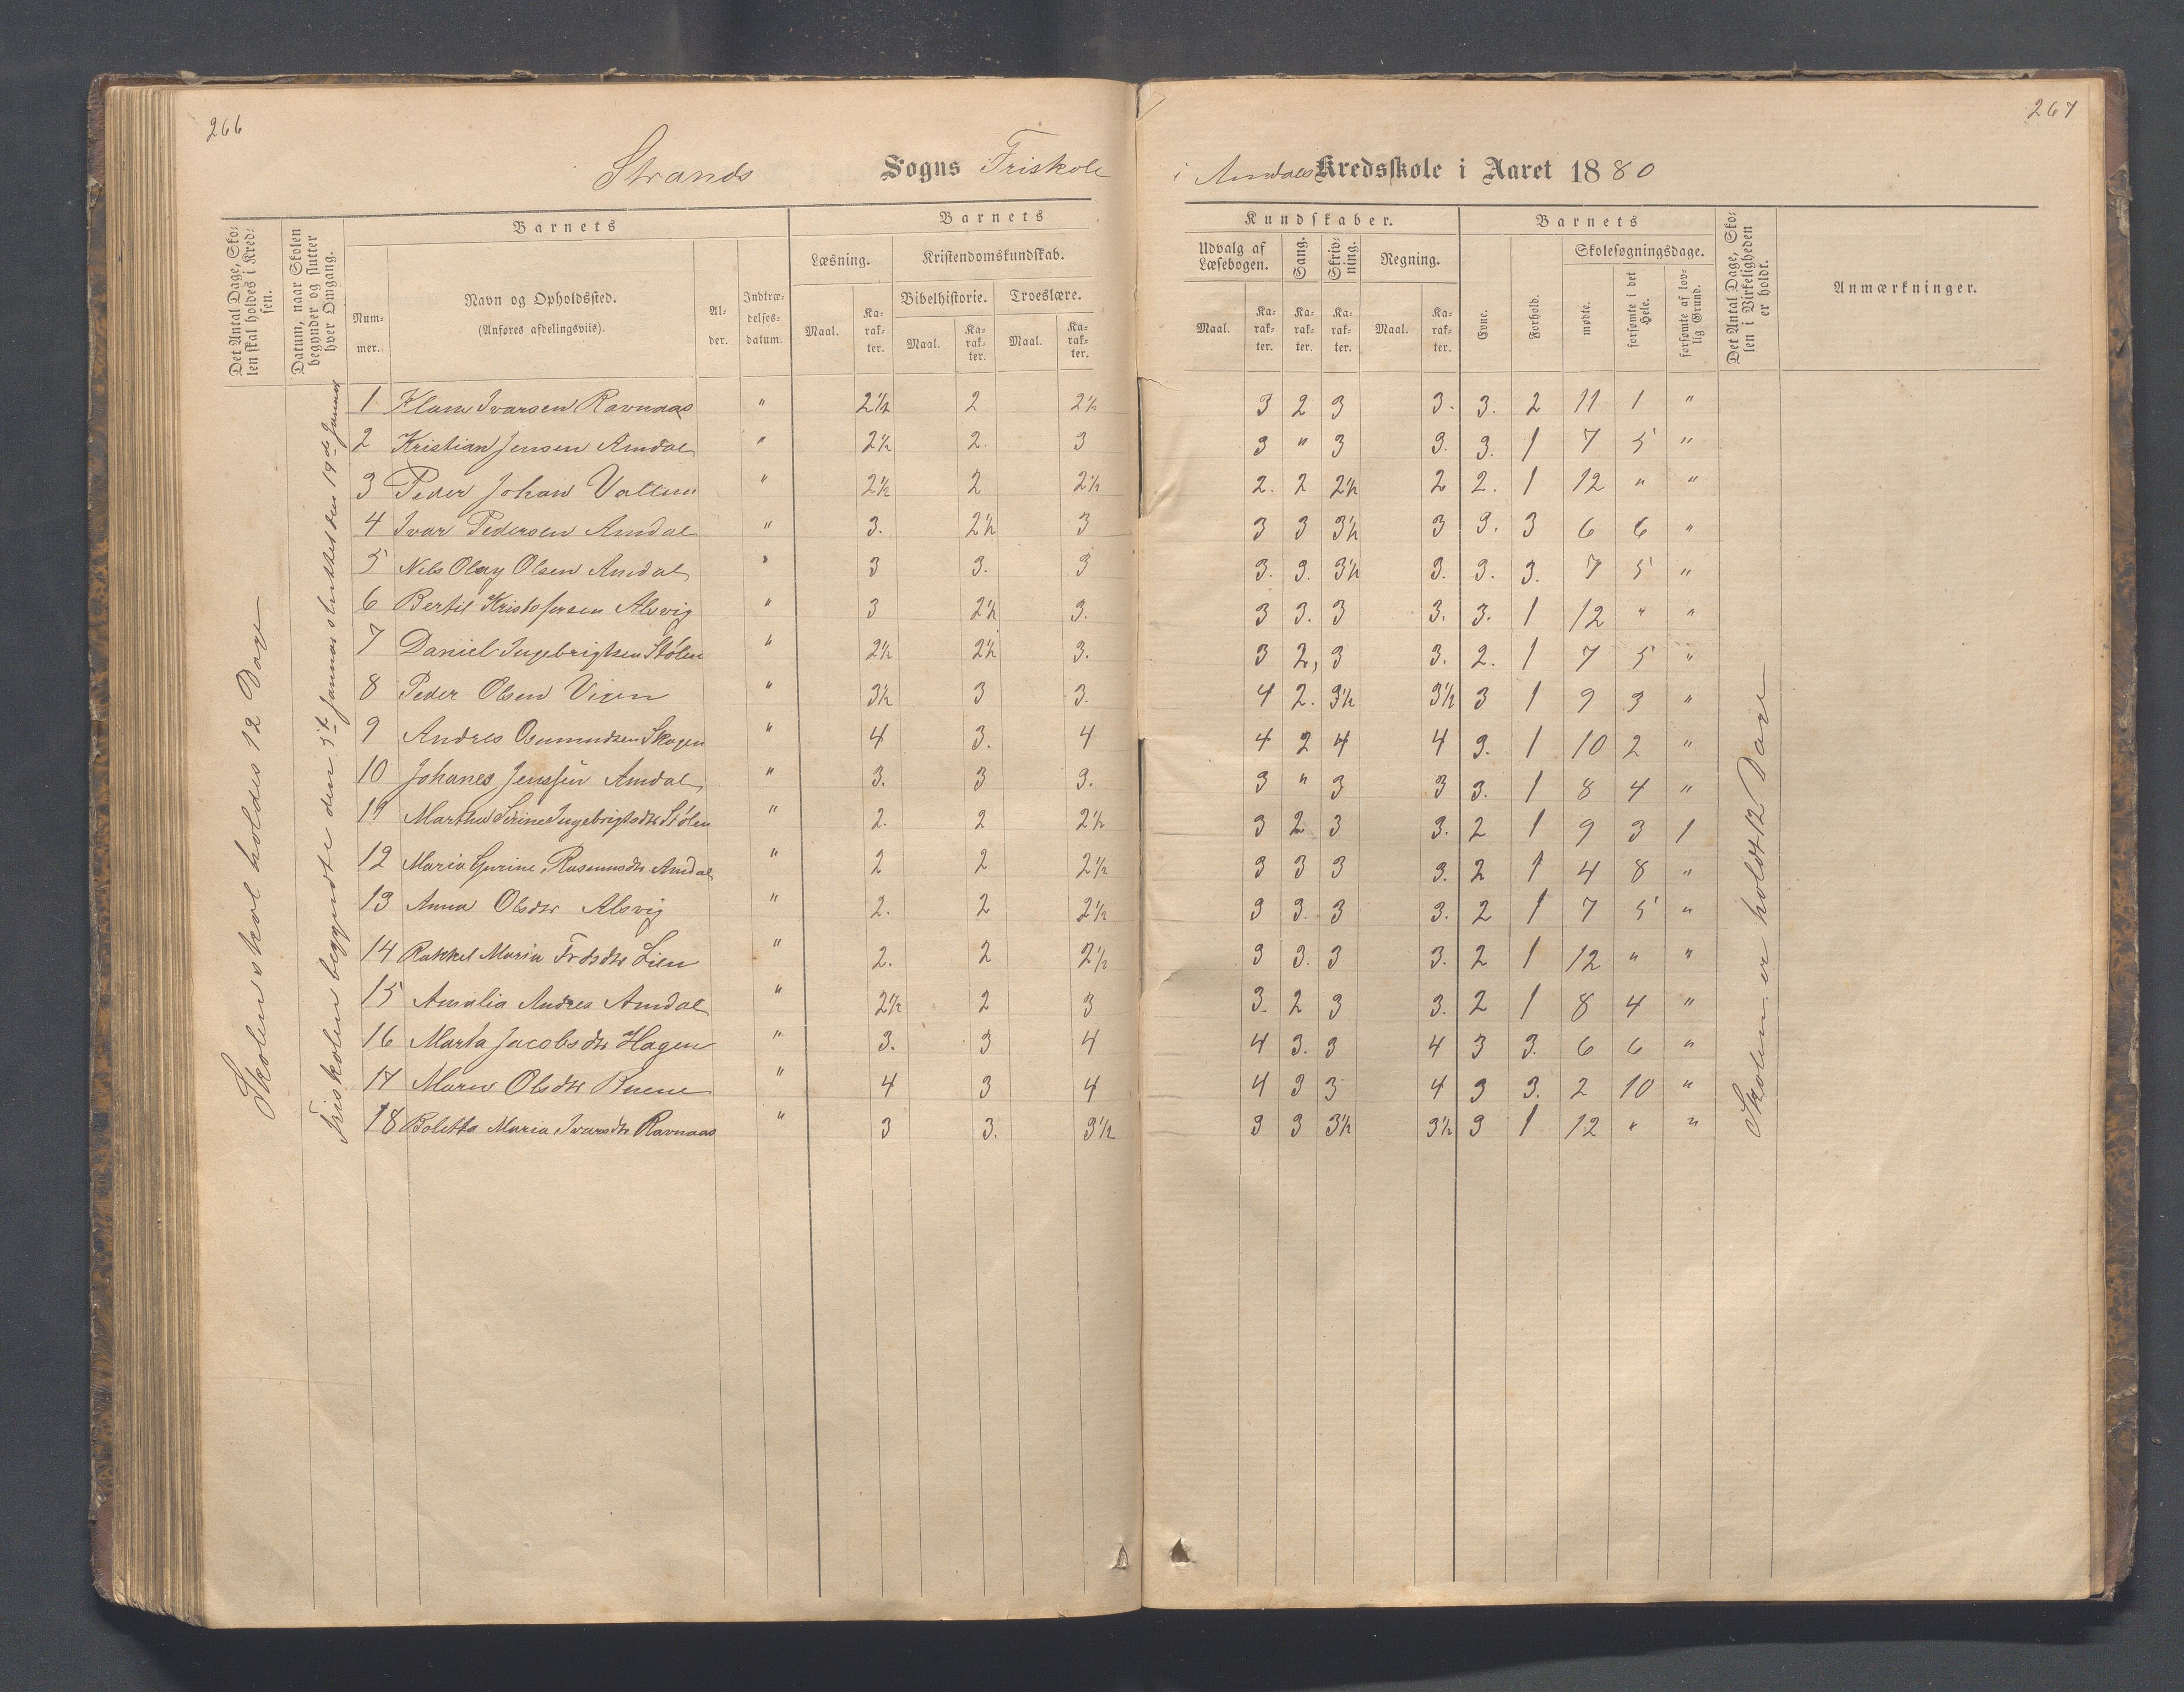 266
267
Strands Sogns Friskole i Amdals Kredsskole i Aaret 1880
Det Antal Dage, Skolen skal holdes i Kredsen.
Datum, naar Skolen begynder og slutter hver Omgang.
Barnets
Barnets
Kundskaber.
Barnets
Det Antal Dage, Skolen i Virkeligheden er holdt.
Anmærkninger.
Nummer.
Navn og Opholdssted.
(Anføres afdelingsviis).
Alder.
Indtrædelsesdatum.
Læsning.
Kristendomskundskab.
Bibelhistorie.
Troeslære.
Udvalg af Læsebogen.
Sang.
Skrivning.
Regning.
Evne.
Forhold.
Skolesøgningsdage.
mødte.
forsømte i det Hele.
forsømte af lovlig Grund.
Maal. Karakter. Maal. Karakter. Maal. Karakter.
Maal. Karakter. Karakter. Karakter. Maal. Karakter.
Skolen skal holdes 12 Dage
Friskolen begyndte den 5te Januar sluttet den 19de Januar
1 Klaus Ivarsen Ravnaas " 2½ 2 2½ 3 2 3 3. 3. 2 11 1 "
2 Kristian Jensen Amdal " 2½ 2. 3 3 " 3 3. 3. 1 7 5 "
3 Peder Johan " 2½ 2 2½ 2. 2 2½ 2 2. 1 12 " "
4 Ivar Pedersen Amdal " 3. 2½ 3 3 3 3½ 3 3. 3 6 6 "
5 Nils Olay Olsen Amdal " 3 3. 3 3. 3. 3½ 3. 3. 3. 7 5 "
6 Bertil Kristofersen Alsvig " 3 2½ 3. 3 3. 3 3. 3. 1 12 " "
7 Daniel Ingebrigtsen Stølen " 2½ 2½ 3. 3 2, 3 3. 2. 1 7 5 "
8 Peder Olsen Vigen " 3½ 3 3. 4 2. 3½ 3½ 3 1 9 3 "
9 Andres Osmundsen Skogen " 4 3. 4 4 2 4 4 3. 1 10 2 "
10 Johanes Jenssen Amdal " 3. 3 3. 3 " 3 3 3. 1 8 4 "
11 Martha Serine Ingebrigtsdtr Stølen " 2. 2 2½ 3 2 3 3. 2 1 9 3 1
12 Maria Gurine Rasmusdtr Amdal " 2 2 2½ 3 3 3 3. 2 1 4 8 "
13 Anna Olsdtr Alsvig " 2. 2 2½ 3 3. 3 3. 2 1 7 5 "
14 Rakkel Maria Lien " 2. 2 2½ 3 3. 3 3. 2 1 12 " "
15 Amalia Andrea Amdal " 2½ 2 3 3. 2 3 3. 2 1 8 4 "
16 Marta Jacobsdtr Hagen " 3. 3 4 4 3. 3 4 3 3. 6 6 "
17 Maren Olsdtr " 4 3 4 4 3 3 4 3 3. 2 10 "
18 Boletta Maria Ivarsdtr Ravnaas " 3 3. 3½ 3 3 3½ 3½ 3 1 12 " "
Skolen er holdt 12 Dage